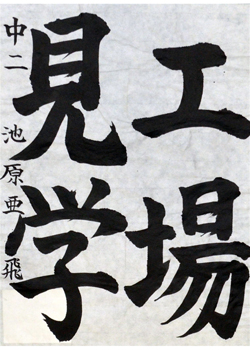 工場
見学
中二 池原亜飛